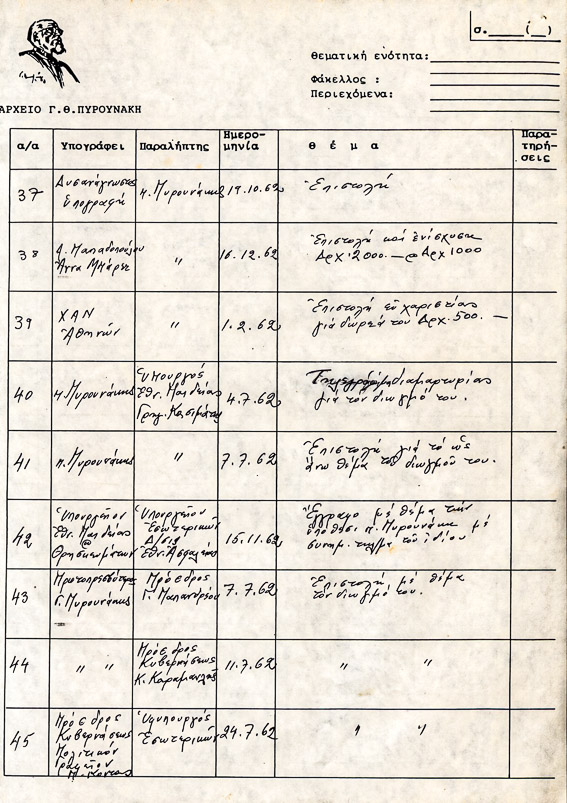 σ.____(__)
Θεματική ενότητα:
Φάκελλος :
Περιεχόμενα:
ΑΡΧΕΙΟ Γ.Θ.ΠΥΡΟΥΝΑΚΗ
α/α Υπογράφει Παραλήπτης Ημερο-μηνία θ έ μ α Παρα-τηρή-σεις
37 Δυσανάγνωστος υπογραφή π. Πυρουνάκης 19.10.62 Ἐπιστολή
38 Δ. Παπαδοπούλου Ἄννα 〃 16.12.62 Ἐπιστολή καί ἐνίσχυση
Δρχ. 2000. — Δρχ 1000
39 ΧΑΝ Ἀθηνῶν 〃 1.2.62 Ἐπιστολή εὐχαριστίας
γιά δωρεά του Δρχ. 500. —
40 π. Πυρουνάκης Ὑπουργός Ἐθν. Παιδείας Γρηγ. Κασιμάτης 4.7.62 διαμαρτυρίας
γιά τόν διωγμό του.
41 π. Πυρουνάκης 〃 7.7.62 Ἐπιστολή γιά τό ὡς
ἄνω θέμα τοῦ διωγμοῦ του.
42 Ὑπουργεῖον Ἐθν. Παιδείας Θρησκευμάτων Ὑπουργεῖον Ἐσωτερικῶν Δ/σις Ἐθν. Ἀσφαλείας 15.11.62 Ἔγγραφο μέ θέμα τήν
ὑπόθεση π. Πυρουνάκη μέ
συνημ. τοῦ ἰδίου.
43 Πρωτοπρεσβύτερος Γ. Πυρουνάκης Πρόεδρος Γ. Παπανδρέου 7.7.62 Ἐπιστολή μέ θέμα
τόν διωγμό του.
44 〃 〃 Πρόεδρος Κυβερνήσεως Κ. Καραμανλῆς 11.7.62 〃 〃
45 Πρόεδρος Κυβερνήσεως Πολιτικόν Γραφεῖον Ὑφυπουργός Ἐσωτερικῶν 24.7.62 〃 〃